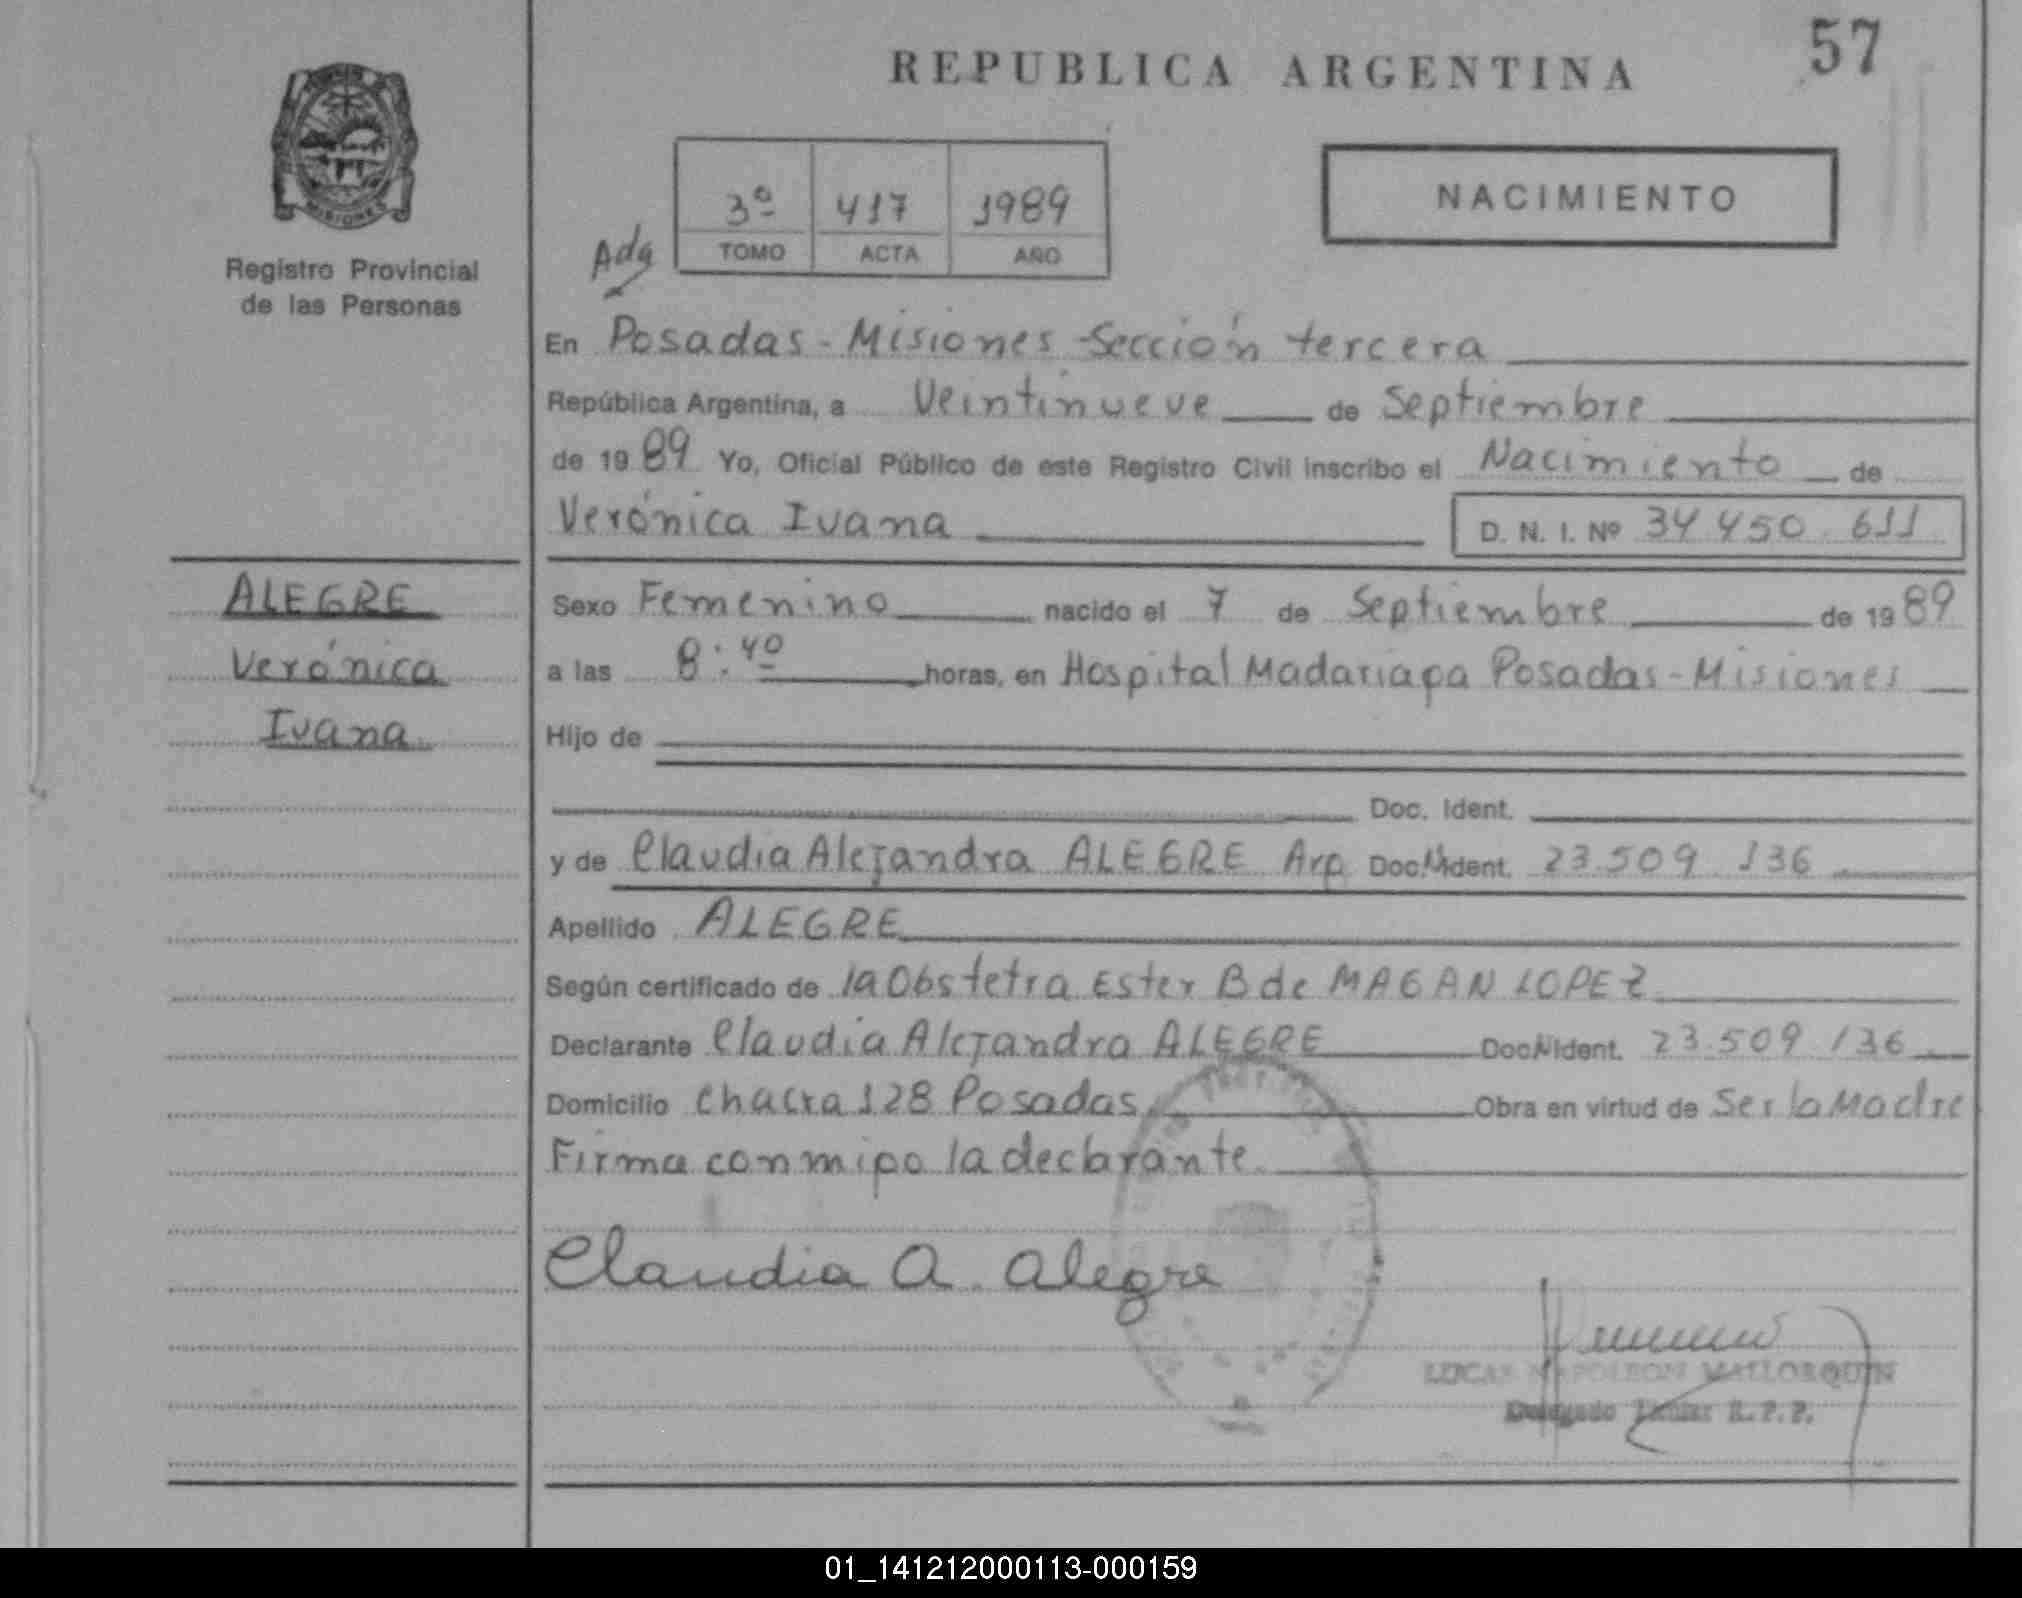 REPUBLICA ARGENTINA
57
MISIONES
Registro Provincial
de las Personas
Adq
3º 417 1989
TOMO ACTA AÑO
NACIMIENTO
En Posadas - Misiones - Sección tercera
República Argentina, a Veintinueve de Septiembre
de 1989 Yo, Oficial Público de este Registro Civil inscribo el Nacimiento de
Verónica Ivana D. N. I. Nº 34 450.611
ALEGRE
Verónica
Ivana
Sexo Femenino nacido el 7 de Septiembre de 1989
a las 8:40 horas, en Hospital Madariaga Posadas - Misiones
Hijo de
Doc. Ident.
y de Claudia Alejandra ALEGRE Arg Doc. Ident. 23.509.136
Apellido ALEGRE
Según certificado de la Obstetra Ester B de MAGAN LOPEZ
Declarante Claudia Alejandra ALEGRE Doc. Ident. 23.509.136
Domicilio Chacra 128 Posadas Obra en virtud de Ser la Madre
Firma conmigo la declarante
Claudia A. Alegre
LUCAS NAPOLEON MALLORQUIN
Delegado Titular R.P.P.
01_141212000113-000159